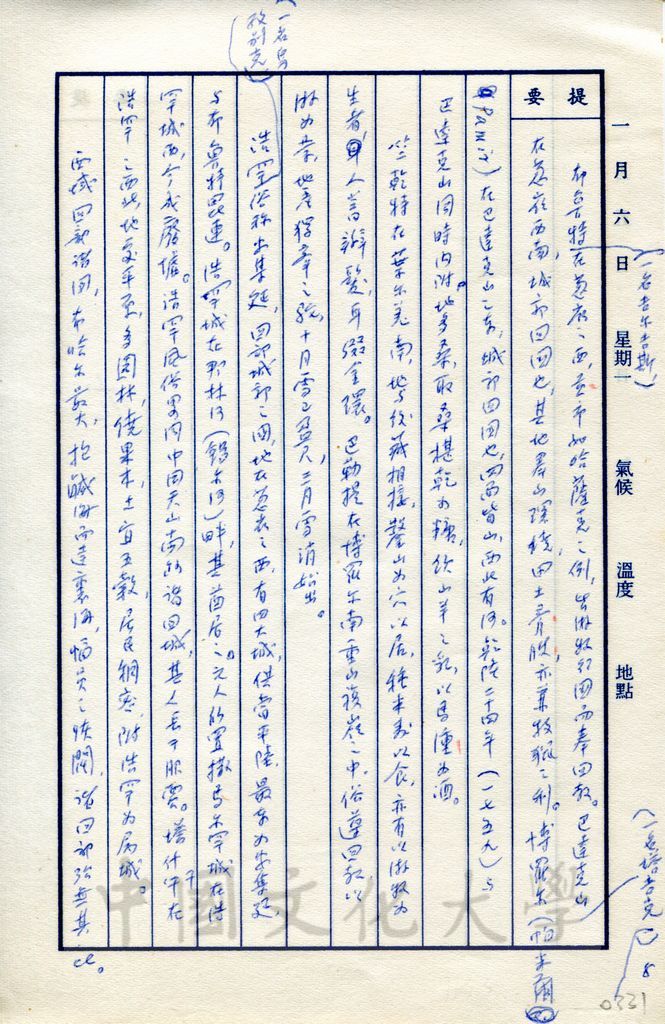 一月六日 星期一 氣候 溫度 地點
提要
(一名吉尔吉斯)
(一名塔吉克) 8
布魯特在葱嶺之西,至市如哈薩克之例,皆游牧行國而奉回教。巴達克山
在葱嶺西南,城郭回國也,其地羣山環繞,田土膏腴,亦兼牧獵之利。博羅尔(帕米爾
Pamir)在巴達克山之東,城郭回國也,四面皆山,西北有河。乾隆二十四年(一七五九)与
巴達克山同時內附。地多桑,取桑椹乾为糧,飲山羊之乳,以馬湩为酒。
竺乾特在葉尔羌南,地与後藏相接,鑿山为穴以居,種禾麥以食,亦有以游牧为
生者,人皆辮髮,耳綴金環。巴勒提在博羅尔南重山複嶺之中,俗遵回教,以
游为業,地產獨峯之駝,十月雪已盈尺,三月雪消始出。
(一名烏孜別克)
浩罕俗称安集延,回部城郭之國,地在葱嶺之西,有四大城,俱當平陸,最東为安集延,
与布魯特毘連。浩罕城在那林河(錫尔河)畔,其酋居之。元人所置撒馬尔罕城在浩
罕城西,今成廢墟。浩罕風俗畧同中国天山南路諸回城,其人長于服賈。塔什干在
浩罕之西北,地處平原,多園林,饒果木,土宜五穀,居民稠密,附浩罕为屬城。
西域回部諸国,布哈尔最大,抱鹹海而達裏海,幅員之恢闊,諸回部殆無其比。
0331
中國文化大學